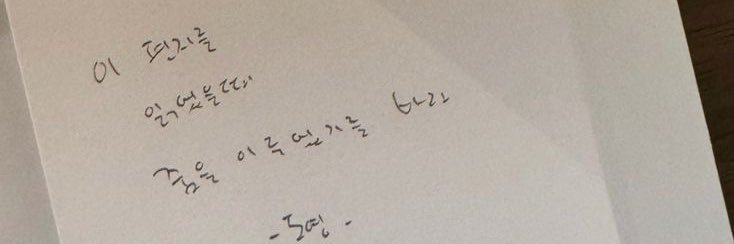 이 편지를
읽었을때
꿈을 이루었기를 바라